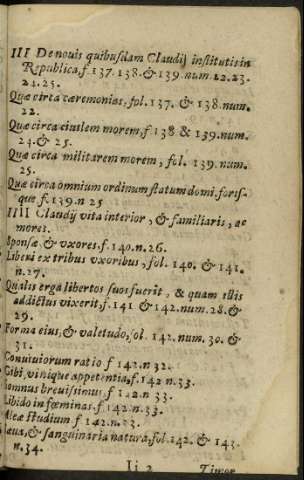 III De nouis quibusdam Claudij institutis in
Republica, f 137. 138. & 139. num 22.23.
24.25.
Quæ circa cæremonias, fol. 137. & 138. num.
22.
Quæ circa ciuilem morem, f 138 & 139. num.
24. & 25.
Quæ circa militarem morem, fol. 139. num.
25.
Quæ circa omnium ordinum statum domi. foris-
que f. 139. n 25
IIII Claudij vita interior, & familiaris, ac
mores.
Sponsæ & vxores, f. 140. n. 26.
Liberi ex tribus vxoribus, fol. 140. & 141.
n. 27.
Qualis erga libertos suos fuerit, & quam illis
addictus vixerit, f. 141 & 142. num. 28. &
29.
Forma eius, & valetudo, fol. 142. num. 30. &
31.
Conuiuiorum ratio f 142. n 32.
Cibi, vinique appetentia, f. 142 n. 33.
Somnus breuissimus f 142. n 33.
Libido in fœminas. f 142. n 33.
Aleæ studium f 142. n. 33.
Sæua, & sanguinaria natura, fol. 142. & 143.
n. 34.
Ii 2 Timor